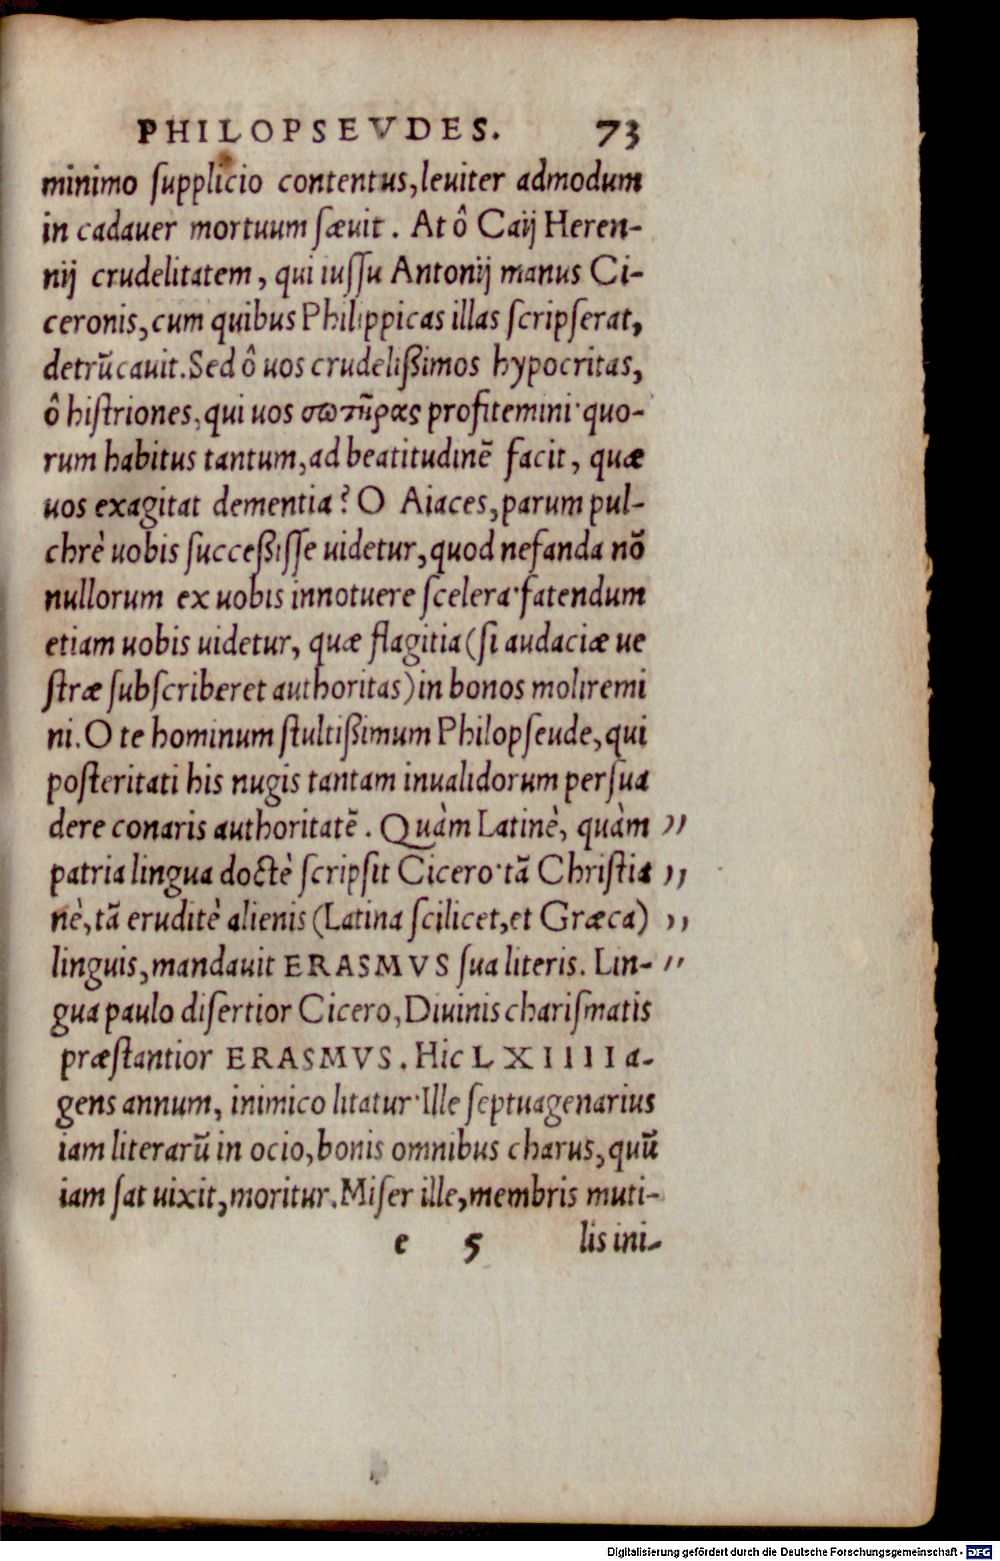 PHILOPSEVDES. 73
minimo ſupplicio contentus, leuiter admodum
in cadauer mortuum ſæuit. At ô Caij Heren-
nij crudelitatem, qui iuſſu Antonij manus Ci-
ceronis, cum quibus Philippicas illas ſcripſerat,
detrūcauit. Sed ô uos crudelißimos hypocritas,
ô hiſtriones, qui uos σωτῆρας profitemini· quo-
rum habitus tantum, ad beatitudinē facit, quæ
uos exagitat dementia? O Aiaces, parum pul-
chrè uobis ſucceßiſſe uidetur, quod nefanda nō
nullorum ex uobis innotuere ſcelera· fatendum
etiam uobis uidetur, quæ flagitia (ſi audaciæ ue
ſtræ ſubſcriberet authoritas) in bonos moliremi
ni. O te hominum ſtultißimum Philopſeude, qui
poſteritati his nugis tantam inualidorum perſua
dere conaris authoritatē. Quàm Latinè, quàm ,,
patria lingua doctè ſcripſit Cicero· tā Chriſtia ,,
nè, tā eruditè alienis (Latina ſcilicet, et Græca) ,,
linguis, mandauit ERASMVS ſua literis. Lin- ,,
gua paulo diſertior Cicero, Diuinis chariſmatis
præſtantior ERASMVS. Hic LXIIII a-
gens annum, inimico litatur· Ille ſeptuagenarius
iam literarū in ocio, bonis omnibus charus, quū
iam ſat uixit, moritur. Miſer ille, membris muti-
e 5 lis ini-
Digitalisierung gefördert durch die Deutsche Forschungsgemeinschaft - DFG